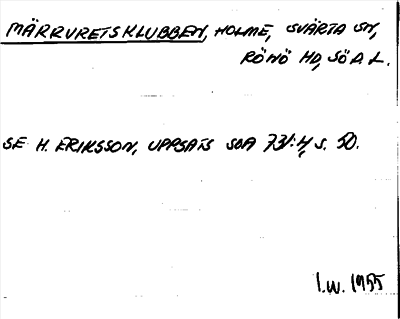 MÄRRVRETSKLUBBEN, HOLME, SVÄRTA SN,
RÖNÖ HD, SÖA L.
SE H. ERIKSSON, UPPSATS SOA 731:4, S. 50.
I.W. 1955